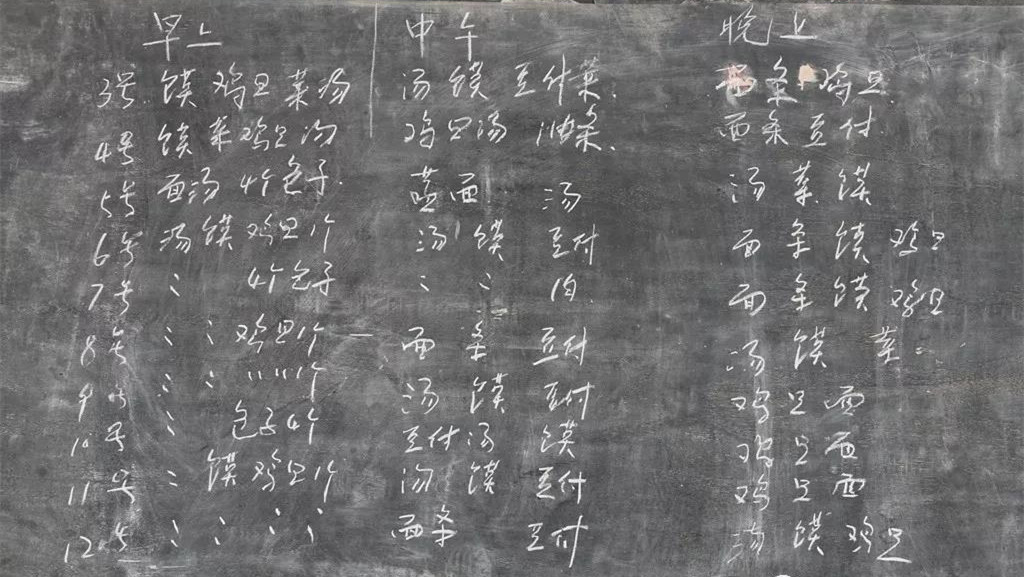 早上 中午 晚上
3号 馍 鸡旦 菜 汤 汤 馍 豆付菜 面条 鸡旦
4号 馍 菜 鸡旦 汤 鸡旦汤 油条 面条 豆付
5号 面汤 4个包子 蒸面 汤 汤 菜 馍
6号 汤 馍 鸡旦1个 汤 馍 豆付 面条 馍 鸡旦
7号 〃 4个包子 〃 〃 肉 面条 馍 鸡旦
8号 〃 〃 鸡旦1个 面条 豆付 汤 馍 菜
9号 〃 〃 〃〃1个 汤 馍 豆付 鸡旦面
10号 〃 包子4个 豆付汤 馍 鸡旦面
11号 〃 馍 鸡旦1个 汤 馍 豆付 鸡旦面
12号 〃 〃 〃 〃 面条 豆付 汤 馍 鸡旦